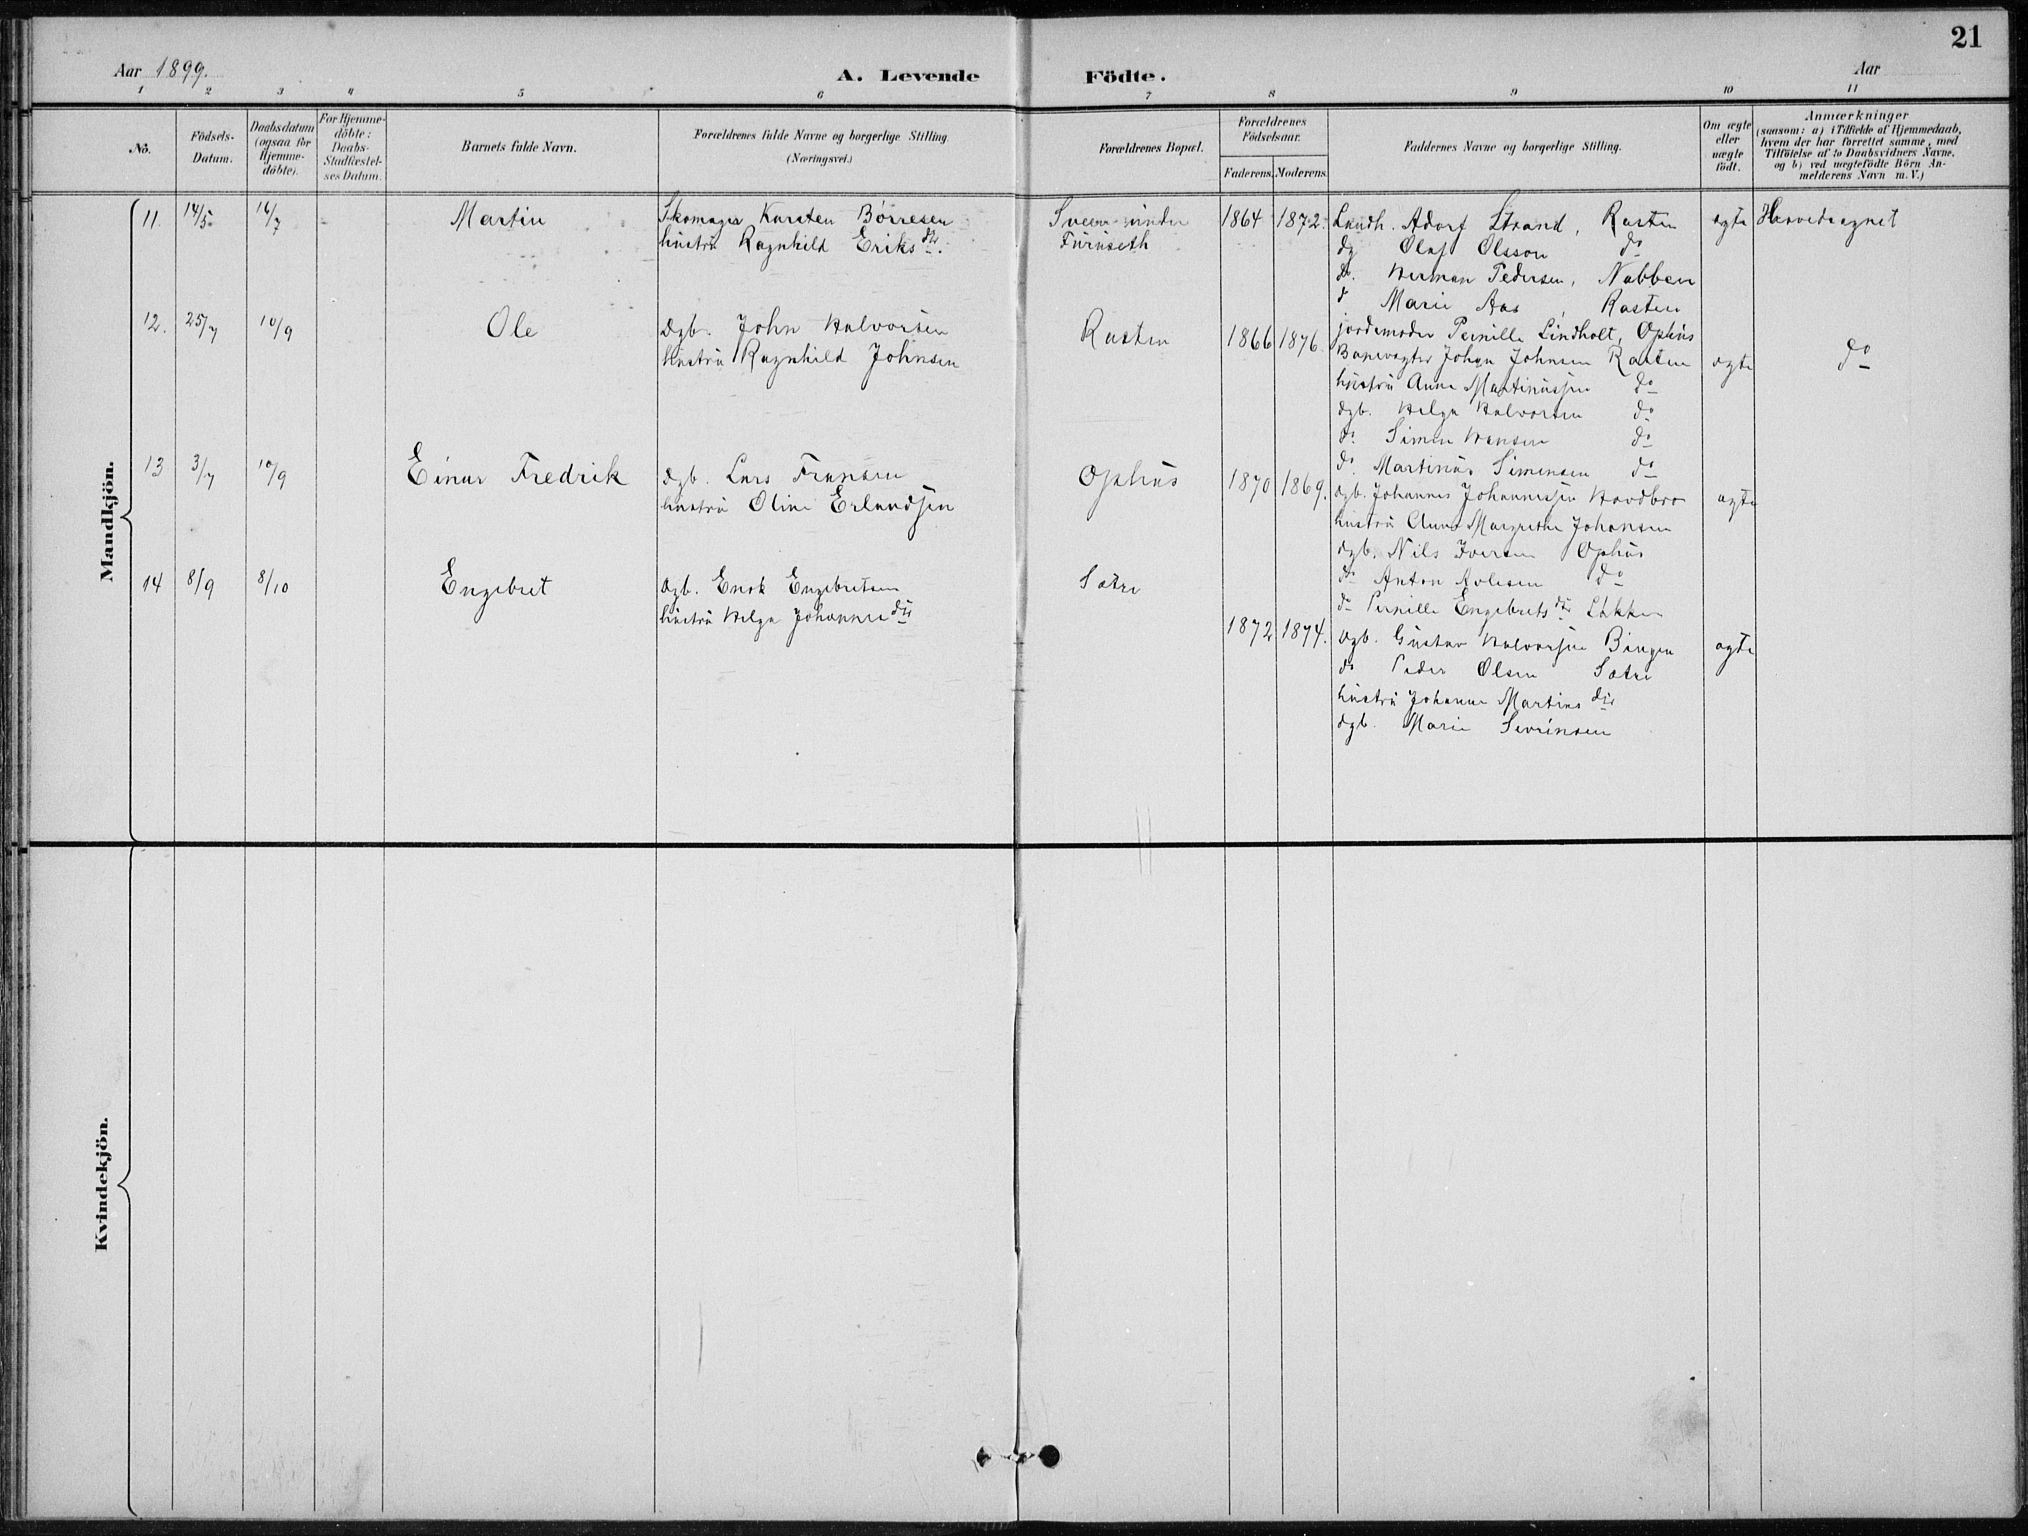 21
Aar 1899.
A. Levende
Födte.
Aar
1 2 3 4 5 6 7 8 9 10 11
No.
Födsels-
Datum.
Daabsdatum
(ogsaa for
Hjemme-
döbte).
For Hjemme-
döbte:
Daabs-
Stadfæstel-
ses Datum.
Barnets fulde Navn.
Forældrenes fulde Navne og borgerlige Stilling.
(Næringsvei.)
Forældrenes Bopæl.
Forældrenes
Födselsaar.
Faderens. Moderens.
Faddernes Navne og borgerlige Stilling.
Om ægte
eller
uægte
født.
Anmærkninger
(saasom: a) i Tilfælde af Hjemmedaab,
hvem der har forrettet samme, med
Tilföielse af to Daabsvidners Navne,
og b) ved uægtefødte Börn An-
melderens Navn m. V.)
Mandkjön.
11. 14/5 14/7 Martin
Skomager Karsten Børresen
hustru Ragnhild Eriksdtr.
Sveen under
Furuseth
1864 1872.
Landh. Adorf Strand, Rasten
do Olaf Olsson do
do. Herman Pedersen, Nabben
d Marie Aas, Rasten
jordemoder Pernille Lindholt, Ophus
ægte
Hovedsognet
12. 25/7 10/9 Ole
dgb. John Halvorsen
hustru Ragnhild Johnsen
Rasten
1866 1876
Banevogter Johan Johnsen Rasten
hustru Anne Martinussen do
dgb. Helga Halvorsen do
do. Simen Hansen do
do. Martinus Simensen do
ægte
do
13 3/7 10/9 Einar Fredrik
dgb. Lars Fransen
hustru Oline Erlandsen
Ophus
1870 1869.
dgb. Johannes Johannessen Hovdbro
hustru Anne Margrethe Johansen
dgb. Nils Iversen Ophus
do Anton Avlesen do
do Pernille Engebretsdtr. Løkken
ægte
14 8/9 8/10 Engebret
dgb. Enok Engebretsen
hustru Helga Johannesdtr
Sætre
1872 1874.
dgb. Gustav Halvorsen Bingen
do Peder Olsen Sætre
hustru Johanne Martinsdtr
dgb. Marie Sevrinsen
ægte
Kvindekjön.